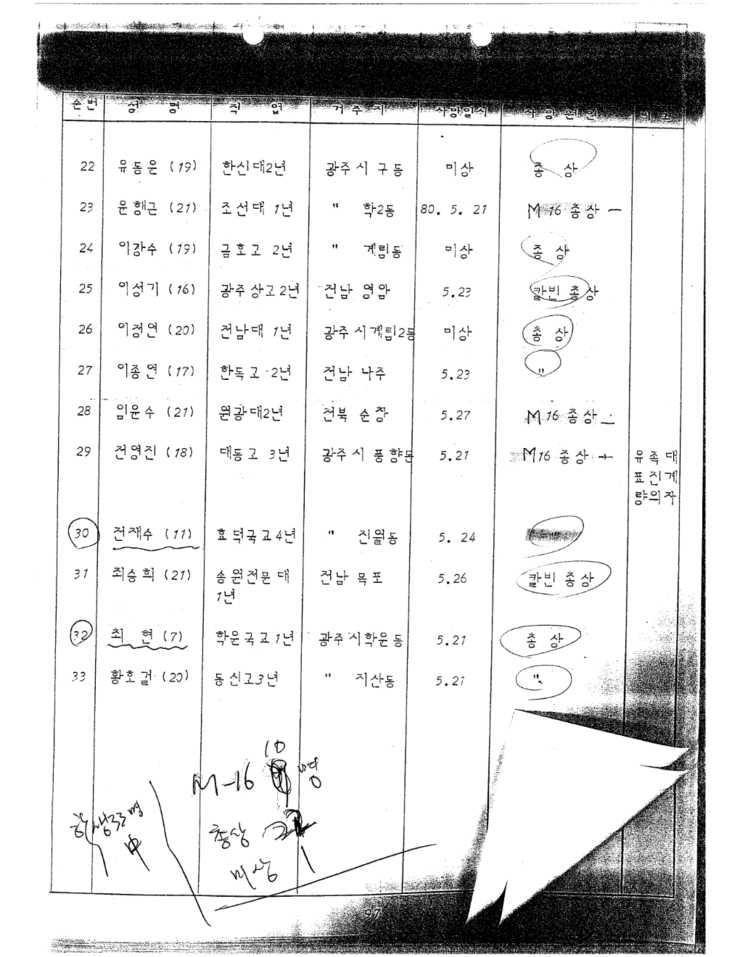 순번 성 명 직 업 거 주 지 사망일시 사 망 원 인 비 고
22 유동운 (19) 한신대2년 광주시 구동 미상 총 상
23 윤행근 (21) 조선대 1년 " 학2동 80. 5. 21 M-16 총상
24 이강수 (19) 금호고 2년 " 계림동 미상 총 상
25 이성기 (16) 광주상고2년 전남 영암 5.23 칼빈 총상
26 이정연 (20) 전남대 1년 광주시계림2동 미상 총 상
27 이종연 (17) 한독고 2년 전남 나주 5.23 "
28 임윤수 (21) 원광대2년 전북 순창 5.27 M16 총상
29 전영진 (18) 대동고 3년 광주시 풍향동 5.21 M16 총상 유족대
표진계
량의자
30 전재수 (11) 효덕국교4년 " 진월동 5. 24
31 최승희 (21) 송원전문대 전남 목포 5.26 칼빈 총상
1년
32 최 현 (7) 학운국교1년 광주시학운동 5.21 총 상
33 황호걸 (20) 동신고3년 " 지산동 5.21 "
10
M-16 명
학생33명
中
총상
미상 1
97